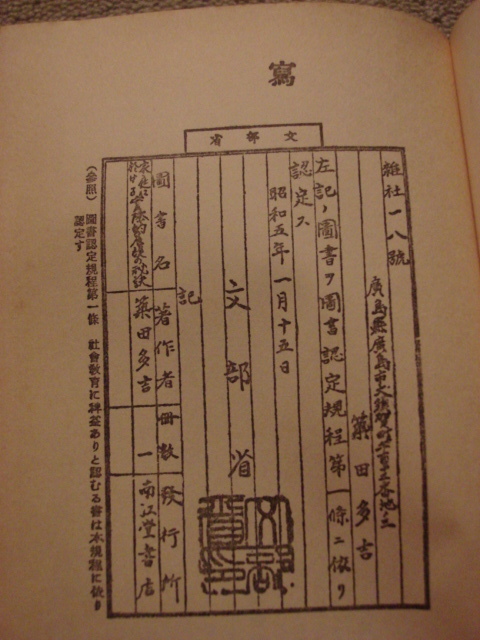 寫
文部省
雜社一八號
廣島縣廣島市大須賀町
築田多吉
左記ノ圖書ヲ圖書認定規程第一條ニ依リ
認定ス
昭和五年一月十五日
文部省
記
圖書名 著作者 冊數 發行所
築田多吉 一 南江堂書店
(參照) 圖書認定規程第一條 社會敎育に裨益ありと認むる書は本規程に依り
認定す